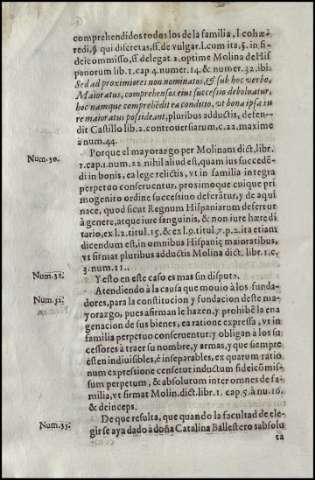 comprehendidos todos los de la familia, l. cohæ-
redi, § qui discretas, ff. de vulgar. l. cum ita, §. in fi-
deicommisso, ff. delegat. 2. optime Molina de His
panorum lib. 1. cap. 4. numer. 14. & numer. 32. ibi:
Sed ad proximiores non nominatos, & sub hoc verbo,
Maioratus, comprehensos eius successio deboluatur,
hoc namque comprehẽdit ea conditio, vt bona ipsa iu
re maioratus posideant, pluribus adductis, defen-
dit Castillo lib. 2. controuersiarum, c. 22. maxime
a num. 44.
Num. 30. Porque el mayorazgo per Molinam dict. lib.
1. cap. 1. num. 22. nihil aliud est, quam ius succedẽ
di in bonis, ea lege relictis, vt in familia integra
perpetuo conseruentur, proximoque cuique pri
mogenito ordine successiuo deferãtur, y de aqui
nace, quod sicut Regnum Hispaniarum defertur
à genere, atque iure sanguinis, & non iure hære di
tario, ex l. 2. titul. 15. & ex l. 9. titul. 7. p. 2. ita etiam
dicendum est, in omnibus Hispaniæ maioratibus,
vt firmat pluribus adductis Molina dict. libr. 1. c.
3. num. 11.
Num. 31. Y esto en este caso es mas sin disputa.
Num. 32. Atendiendo à la causa que mouio à los funda-
dores, para la constitucion y fundacion deste ma-
yorazgo, pues afirman le hazen, y prohibẽ la ena
genacion de sus bienes, ea ratione expressa, vt in
familia perpetuo conseruentur, y obligan à los su-
cessores à traer su nombre, y armas, y que siempre
estèn indiuisibles, è inseparables, ex quarum ratio
num expressione censetur inductum fideicõmis-
sum perpetuum, & absolutum inter omnes de fa-
milia, vt firmat Molin. dict. libr. 1. cap. 5. à nu. 16.
& deinceps.
Num. 33. De que resulta, que quando la facultad de ele-
gir se aya dado à doña Catalina Ballestero sabsolu
ta